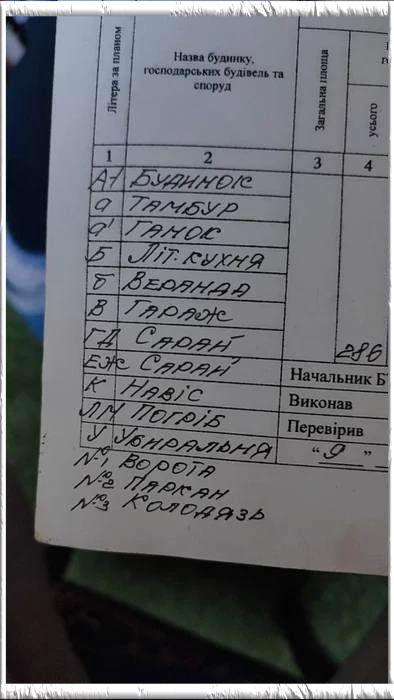 Літера за планом
Назва будинку,
господарських будівель та
споруд
Загальна площа
усього
1 2 3 4
А-1 БУДИНОК
а ТАМБУР
а' ГАНОК
Б ЛІТ. КУХНЯ
б ВЕРАНДА
В ГАРАЖ
Г,Д САРАЙ
286
Е,Ж САРАЙ
Начальник Б
К НАВІС
Виконав
Л,М ПОГРІБ
Перевірив
У УБИРАЛЬНЯ
"9"
№1 ВОРОТА
№2 ПАРКАН
№3 КОЛОДЯЗЬ